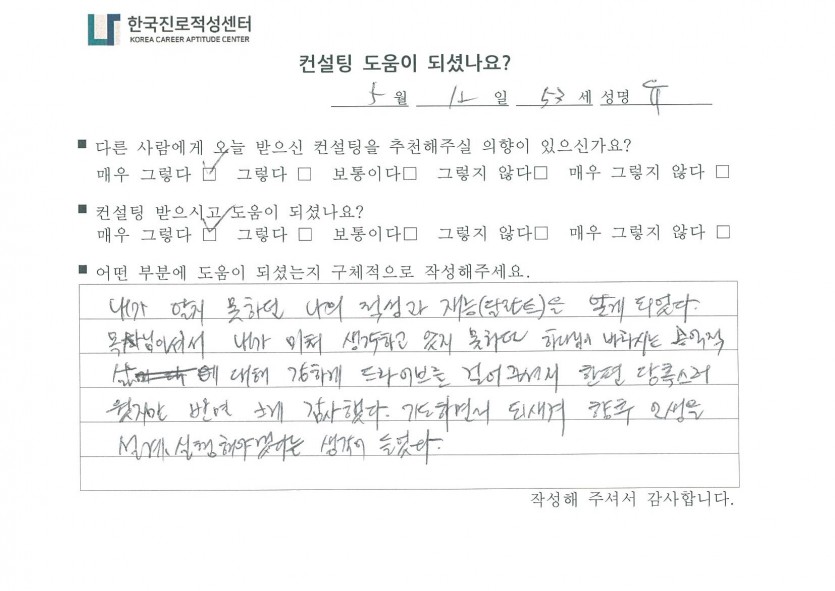 한국진로적성센터
KOREA CAREER APTITUDE CENTER
컨설팅 도움이 되셨나요?
5 월 12 일 53 세 성명 유
■ 다른 사람에게 오늘 받으신 컨설팅을 추천해주실 의향이 있으신가요?
매우 그렇다 ☑ 그렇다 □ 보통이다□ 그렇지 않다□ 매우 그렇지 않다 □
■ 컨설팅 받으시고 도움이 되셨나요?
매우 그렇다 ☑ 그렇다 □ 보통이다□ 그렇지 않다□ 매우 그렇지 않다 □
■ 어떤 부분에 도움이 되셨는지 구체적으로 작성해주세요.
내가 알지 못하던 나의 적성과 재능(달란트)을 알게 되었다.
목사님이셔서 내가 미처 생각하고 있지 못하던 하나님이 바라시는 공익적
삶에 대해 강하게 드라이브를 걸어주셔서 한편 당혹스러
웠지만 반면 크게 감사했다. 기도하면서 되새겨 향후 인생을
설계, 실행해야겠다는 생각이 들었다.
작성해 주셔서 감사합니다.